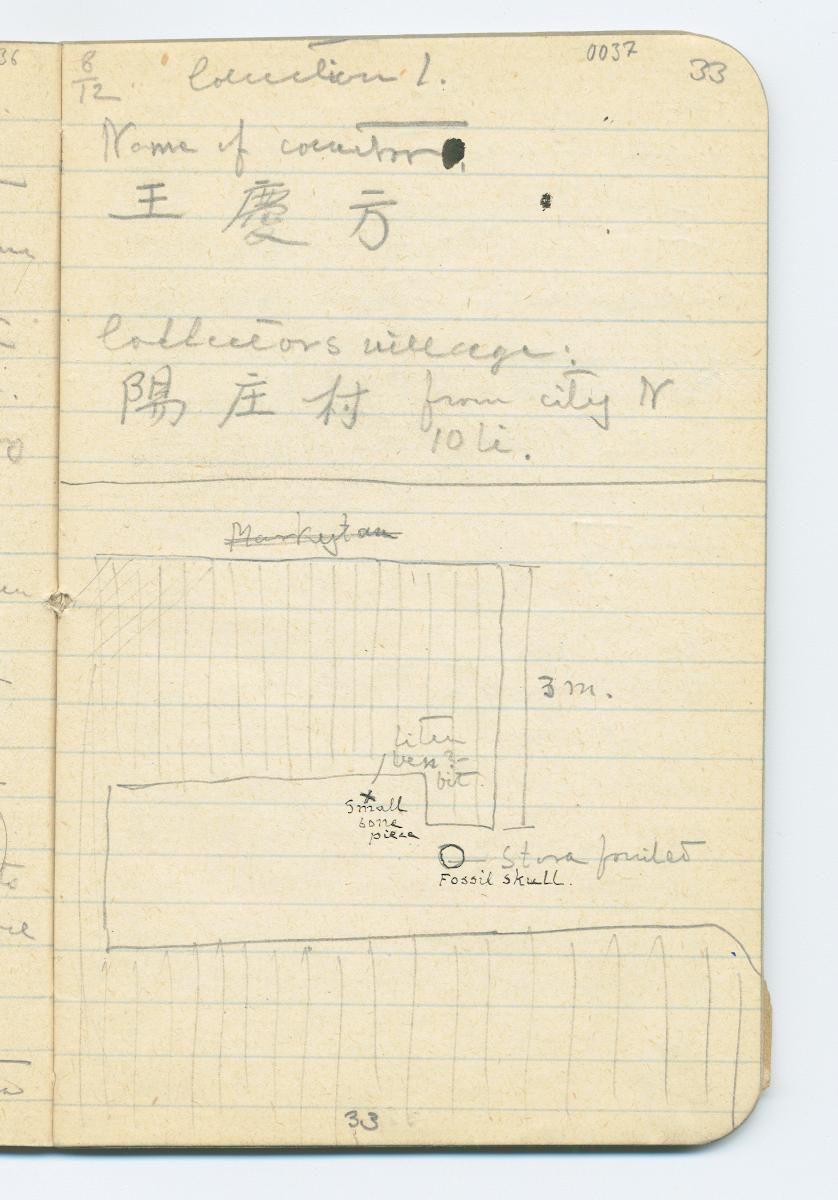 36
0037
33
8/12 Collection 1.
Name of collector
王 慶 方
Collectors village:
陽 庄 村 from city N
10 li.
Markytan
3 m.
Liten
ben-
bit
Small
bone
piece
Stora fyndet
Fossil skull.
33